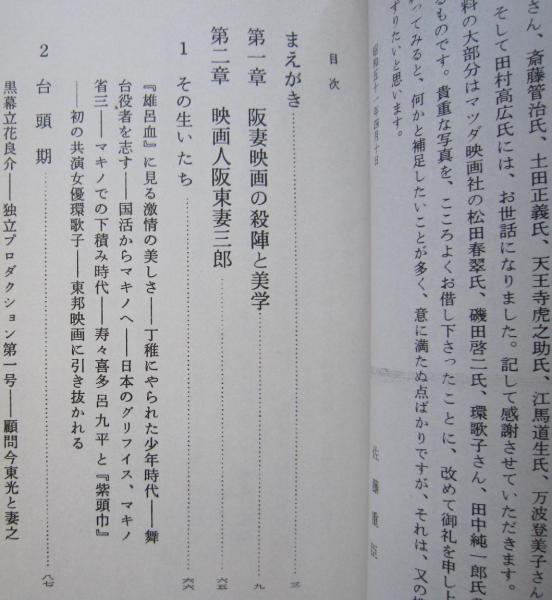 さん、斎藤管治氏、土田正義氏、天王寺虎之助氏、江馬道生氏、万波登美子さん
そして田村高広氏には、お世話になりました。記して感謝させていただきます。
料の大部分はマツダ映画社の松田春翠氏、磯田啓二氏、環歌子さん、田中純一郎氏
るものです。貴重な写真を、こころよくお借し下さったことに、改めて御礼を申し上
ってみると、何かと補足したいことが多く、意に満たぬ点ばかりですが、それは、又の
ずりたいと思います。
昭和五十一年四月十日
佐藤重臣
目次
まえがき……三
第一章 阪妻映画の殺陣と美学……九
第二章 映画人阪東妻三郎……六五
1 その生いたち……六六
『雄呂血』に見る激情の美しさ――丁稚にやられた少年時代――舞
台役者を志す――国活からマキノへ――日本のグリフイス、マキノ
省三――マキノでの下積み時代――寿々喜多呂九平と『紫頭巾』
――初の共演女優環歌子――東邦映画に引き抜かれる
2 台頭期……八七
黒幕立花良介――独立プロダクション第一号――顧問今東光と妻之